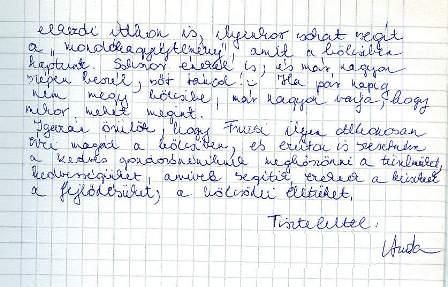 elkezdi itthon is, ilyenkor sokat segít
a "mondókagyűjtemény" amit a bölcsiben
kaptunk. Sokszor énekel is, és már nagyon
szépen beszél, sőt táncol! Ha pár napig
nem megy bölcsibe, már nagyon várja, hogy
mikor mehet megint.
Igazán örülök, hogy Fruzsi ilyen otthonosan
érzi magát a bölcsiben, és ezúton is szeretném
a kedves gondozónőinek megköszönni a türelmüket,
kedvességüket, amivel segítik ezeket a kicsiket
a fejlődésüket, a bölcsődei életüket.
Tisztelettel: